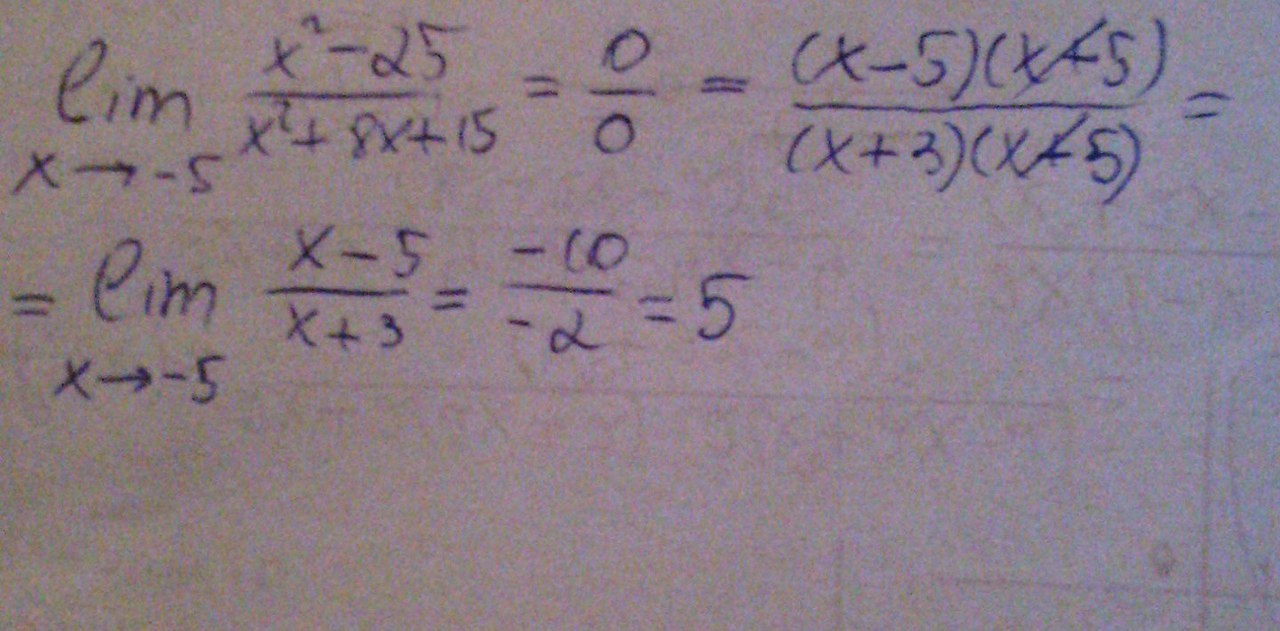 lim x→-5 (x²-25)/(x²+8x+15) = 0/0 = ((x-5)(x+5))/((x+3)(x+5)) =
= lim x→-5 (x-5)/(x+3) = -10/-2 = 5